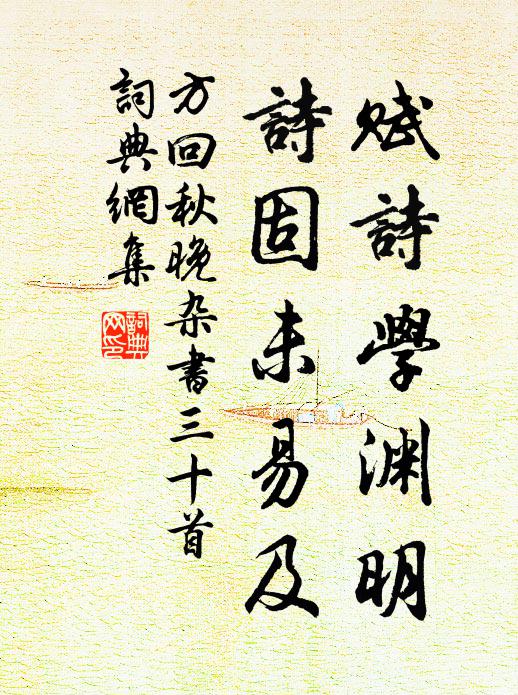 赋詩學渊明
詩固未易及
方回秋晚杂書三十首
詞典網集
詞典网印